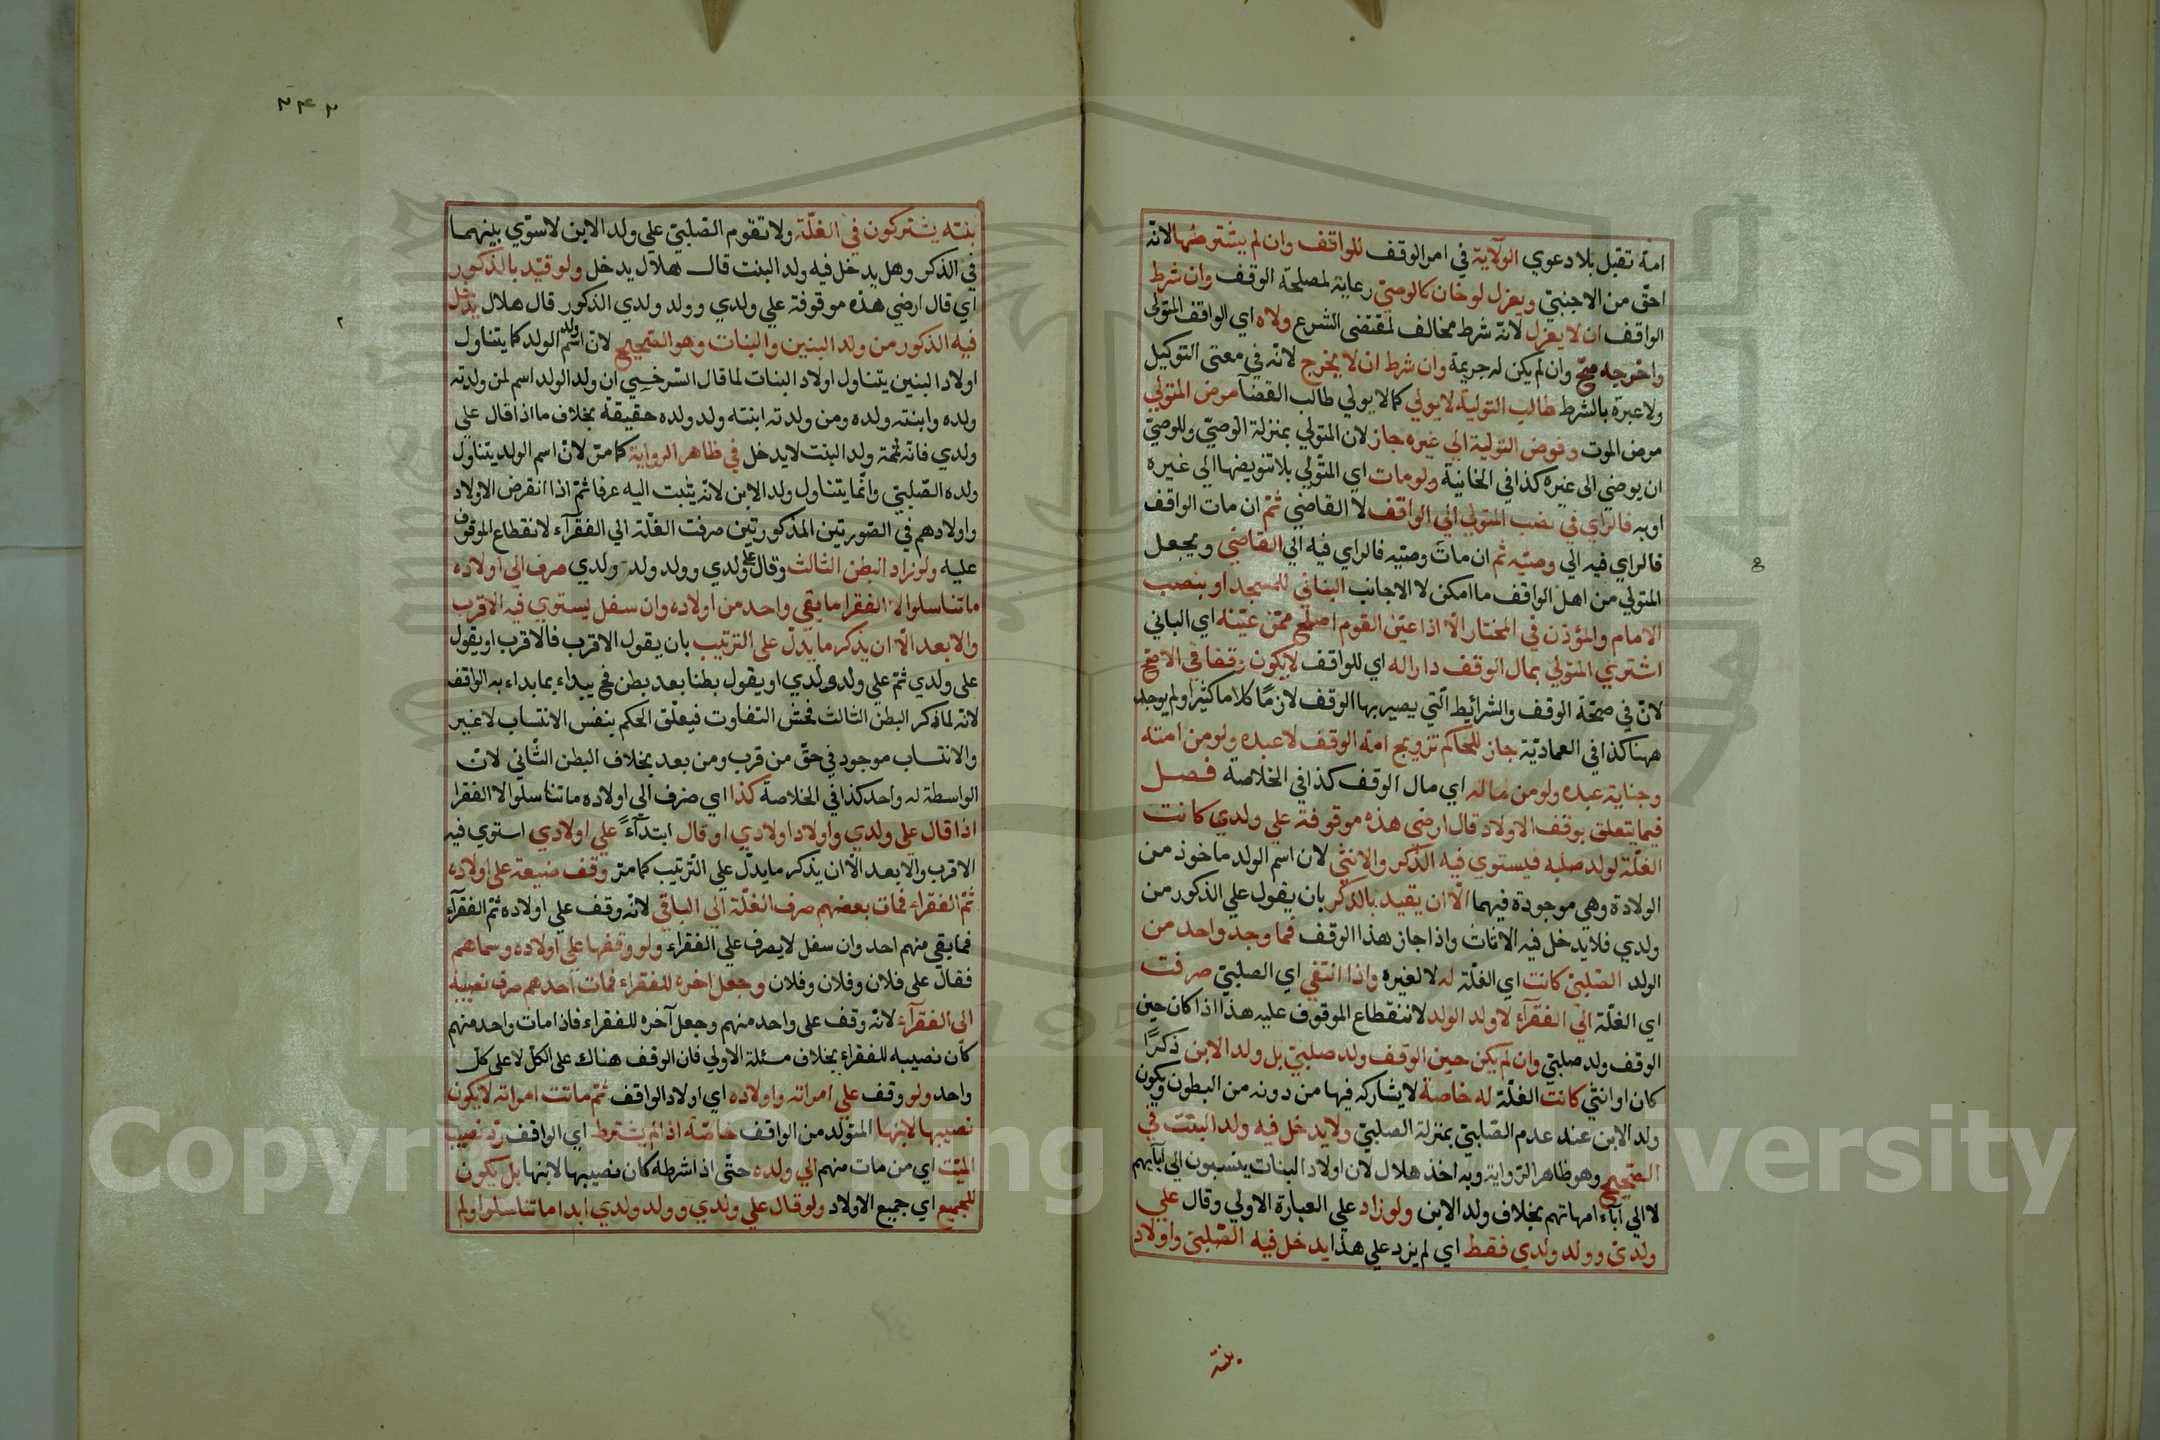 امة تقبل بلا دعوي الولاية في امر الوقف للواقف وان لم يشترطها لانه
احق من الاجنبي ويعزل لو خان كالوصي رعاية لمصلحة الوقف وان شرط
الواقف ان لا يعزل لانه شرط مخالف لمقتضى الشرع ولاه اي الواقف المتولي
واخرجه صح وان لم يكن له جريمة وان شرط ان لا يخرج لانه في معنى التوكيل
ولا عبرة بالشرط طالب التولية لا يولي كما لا يولي طالب القضآ مرض المتولي
مرض الموت وفوض التولية الي غيره جاز لان المتولي بمنزلة الوصيّ وللوصيّ
ان يوصي الى غيره كذا في الخانية ولو مات اي المتولي بلا تفويضها الى غيره
اوبه فالراي في نصب المتولي الي الواقف لا القاضي ثم ان مات الواقف
فالراي فيه الي وصيّه ثم ان مات وصيه فالراي فيه الي القاضي ويجعل
المتولي من اهل الواقف ما امكن لا الاجانب الباني للمسجد او بنصب
الامام والمؤذن في المختار الّا اذا عيّن القوم اصلح ممّن عيّنه اي الباني
اشتري المتولي بمال الوقف دارا له اي للواقف لا يكون وقفا في الاصح
لانّ في صحّة الوقف والشرائط الّتي يصير بها الوقف لازمًا كلاما كثيرا ولم يوجد
ههنا كذا في العماديّة جاز للحاكم تزويج امة الوقف لا عبده ولو من امته
وجناية عبده ولو من ماله اي مال الوقف كذا في الخلاصة فصل
فيما يتعلق بوقف الاولاد قال ارضي هذه موقوفة علي ولدي كانت
الغلّة لولد صلبه فيستوي فيه الذكر والانثي لان اسم الولد ماخوذ من
الولادة وهي موجودة فيهما الّا ان يقيد بالذكر بان يقول علي الذكور من
ولدي فلا يدخل فيه الاناث واذا جاز هذا الوقف فما وجد واحد من
الولد الصّلبيّ كانت اي الغلّة له لا لغيره واذا انتفي اي الصلبيّ صرفت
اي الغلّة الي الفقرآء لا ولد الولد لانقطاع الموقوف عليه هذا اذا كان حين
الوقف ولد صلبي وان لم يكن حين الوقف ولد صلبيّ بل ولد الابن ذكرًا
كان او انثي كانت الغلّة له خاصة لا يشاركه فيها من دونه من البطون ويكون
ولد الابن عند عدم الصّلبيّ بمنزلة الصلبيّ ولا يدخل فيه ولد البنت في
الصّحيح وهو ظاهر الرّواية وبه اخذ هلال لان اولاد البنات ينسبون الى آبآيهم
لا الي آباء امهاتهم بخلاف ولد الابن ولو زاد علي العبارة الاولي وقال علي
ولديّ وولد ولدي فقط اي لم يزد علي هذا يدخل فيه الصّلبيّ واولاد
بنته
٢٤٢
بنته يشتركون في الغلّة ولا تقوم الصّلبيّ علي ولد الابن لا سوّي بينهما
في الذكر وهل يدخل فيه ولد البنت قال هلال يدخل ولو قيّد بالذّكور
اي قال ارضي هذه موقوفة علي ولدي وولد ولدي الذكور قال هلال يدخل
فيه الذكور من ولد البنين والبنات وهو الصّحيح لان اسم ولد الولد كما يتناول
اولاد البنين يتناول اولاد البنات لما قال السّرخسي انّ ولد الولد اسم لمن ولدته
ولده وابنته ولده ومن ولدته ابنته ولد ولده حقيقة بخلاف ما اذا قال علي
ولدي فانه ثمّة ولد البنت لا يدخل في ظاهر الرواية كما مرّ لانّ اسم الولد يتناول
ولده الصّلبيّ وانّما يتناول ولد الابن لانه يثبت اليه عرفا ثمّ اذا انقرض الاولاد
واولادهم في الصّورتين المذكورتين صرفت الغلّة الي الفقرآء لانقطاع الموقوف
عليه ولو زاد البطن الثالث وقال على ولدي وولد ولد ولدي صرف الي اولاده
ما تناسلوا لا الفقرا ما بقي واحد من اولاده وان سفل يستوي فيه الاقرب
والابعد الّا ان يذكر ما يدلّ على الترتيب بان يقول الاقرب فالاقرب او يقول
على ولدي ثمّ علي ولد ولدي او يقول بطنا بعد بطن فح يبداء بما بداء به الواقف
لانه لما ذكر البطن الثالث فحش التفاوت فيعلّق الحكم بنفس الانتساب لا غير
والانتساب موجود في حقّ من قرب ومن بعد بخلاف البطن الثّاني لانّ
الواسطة له واحد كذا في الخلاصة كذا اي صرف الي اولاده ما تناسلوا لا الفقرا
اذا قال على ولدي واولاد اولادي او قال ابتدآءً علي اولادي استوي فيه
الاقرب والابعد الّا ان يذكر ما يدلّ علي التّرتيب كما مرّ وقف ضيعة على اولاده
ثمّ الفقراء فمات بعضهم صرف الغلّة الي الباقي لانه وقف علي اولاده ثم الفقرآء
فما بقي منهم احد وان سفل لا يصرف علي الفقراء ولو وقفها علي اولاده وسماهم
فقال على فلان وفلان وفلان وجعل اخره للفقراء فمات احدهم صرف نصيبه
الى الفقرآء لانه وقف على واحد منهم وجعل آخره للفقراء فاذا مات واحد منهم
كان نصيبه للفقراء بخلاف مسئلة الاولي فان الوقف هناك على الكلّ لا على كلّ
واحد ولو وقف علي امراته واولاده اي اولاد الواقف ثمّ ماتت امراته لا يكون
نصيبها لابنها المتولد من الواقف خاصّة اذ لم يشترط اي الواقف ردّ نصيب
الميّت اي من مات منهم الي ولده حتّى اذا شرطه كان نصيبها لابنها بل يكون
للجميع اي جميع الاولاد ولو قال علي ولدي وولد ولدي ابدا ما تناسلوا ولم
Copyright © King Saud University
1957